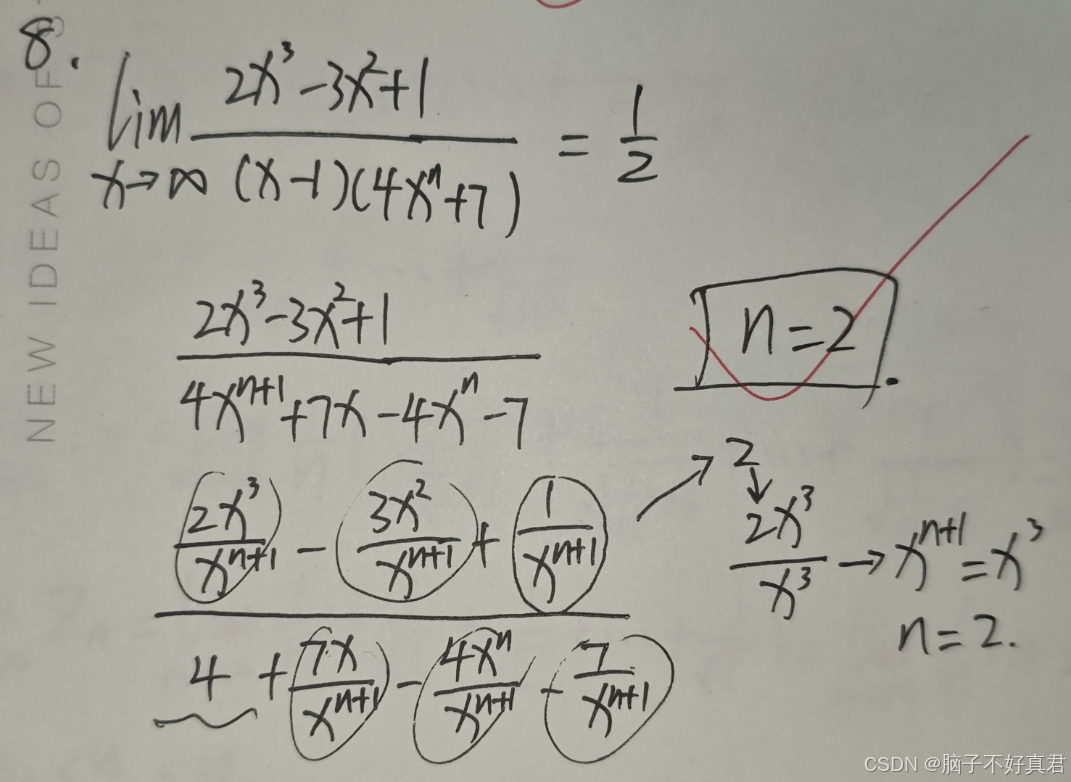 8.
lim x→∞ (2x³-3x²+1)/((x-1)(4xⁿ+7)) = 1/2
(2x³-3x²+1)/(4xⁿ⁺¹+7x-4xⁿ-7)
n=2.
(2x³/xⁿ⁺¹ - 3x²/xⁿ⁺¹ + 1/xⁿ⁺¹)/(4 + 7x/xⁿ⁺¹ - 4xⁿ/xⁿ⁺¹ - 7/xⁿ⁺¹)
→ 2
↓
2x³/x³ → xⁿ⁺¹=x³
n=2.
NEW IDEAS OF
CSDN @脑子不好真君